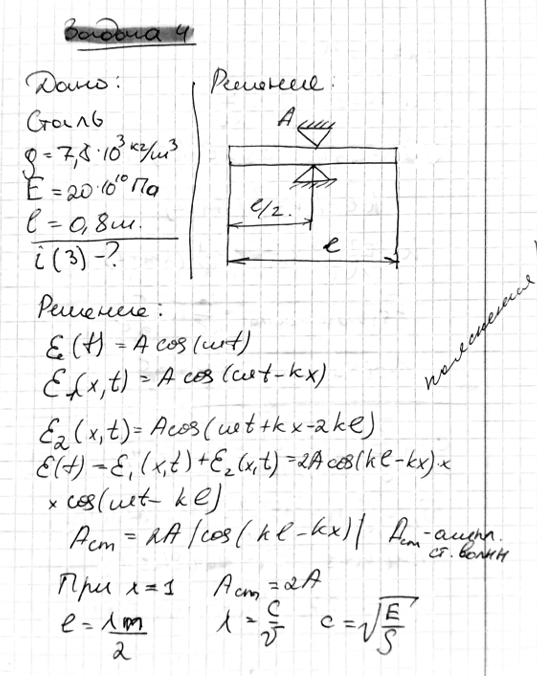 Задача 4
Дано:
Сталь
ρ = 7,8·10³ кг/м³
E = 20·10¹⁰ Па
l = 0,8 м.
i(3) - ?
Решение:
A
l/2.
l
Решение:
ξ(t) = A cos(ωt)
ξ₁(x,t) = A cos(ωt-kx)
ξ₂(x,t) = A cos(ωt+kx-2kl)
ξ(t) = ξ₁(x,t) + ξ₂(x,t) = 2A cos(kl-kx) ×
× cos(ωt-kl)
Aст = 2A |cos(kl-kx)| Aст - ампл.
ст. волны
При x = 1 Aст = 2A
l = λm/2 λ = c/ν c = √(E/ρ)
пояснения